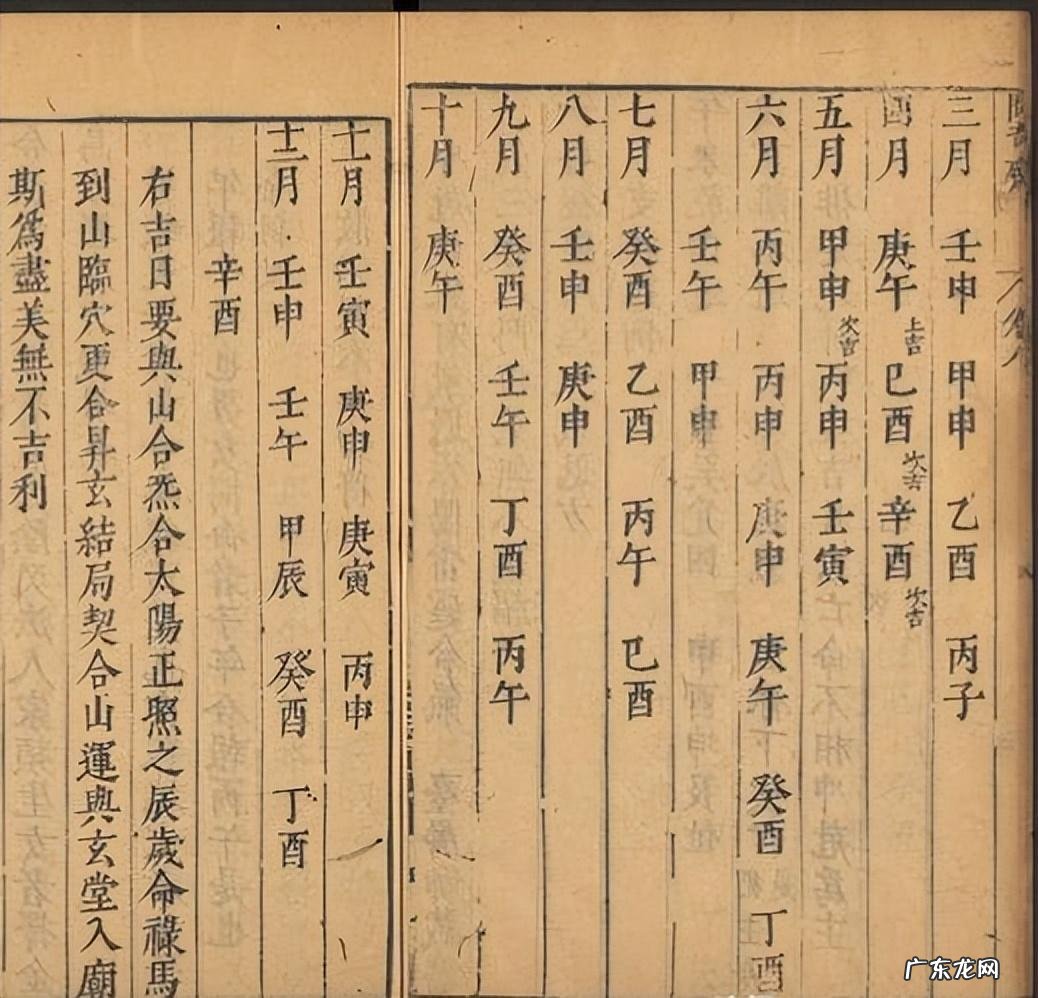 三月 壬申 甲申 乙酉 丙子
四月 庚午 上吉 巳酉 次吉 辛酉 次吉
五月 甲申 次吉 丙申 壬寅
六月 丙午 丙申 庚申 庚午 癸酉 丁酉
壬午 甲申
七月 癸酉 乙酉 丙午 巳酉
八月 壬申 庚申
九月 癸酉 壬午 丁酉 丙午
十月 庚午
十一月 壬寅 庚申 庚寅 丙申
十二月 壬申 壬午 甲辰 癸酉 丁酉
辛酉
右吉日要與山合炁合太陽正照之辰歲命祿馬
到山臨穴更合昇玄結局契合山運與玄堂入廟
斯爲盡美無不吉利
广东龙网